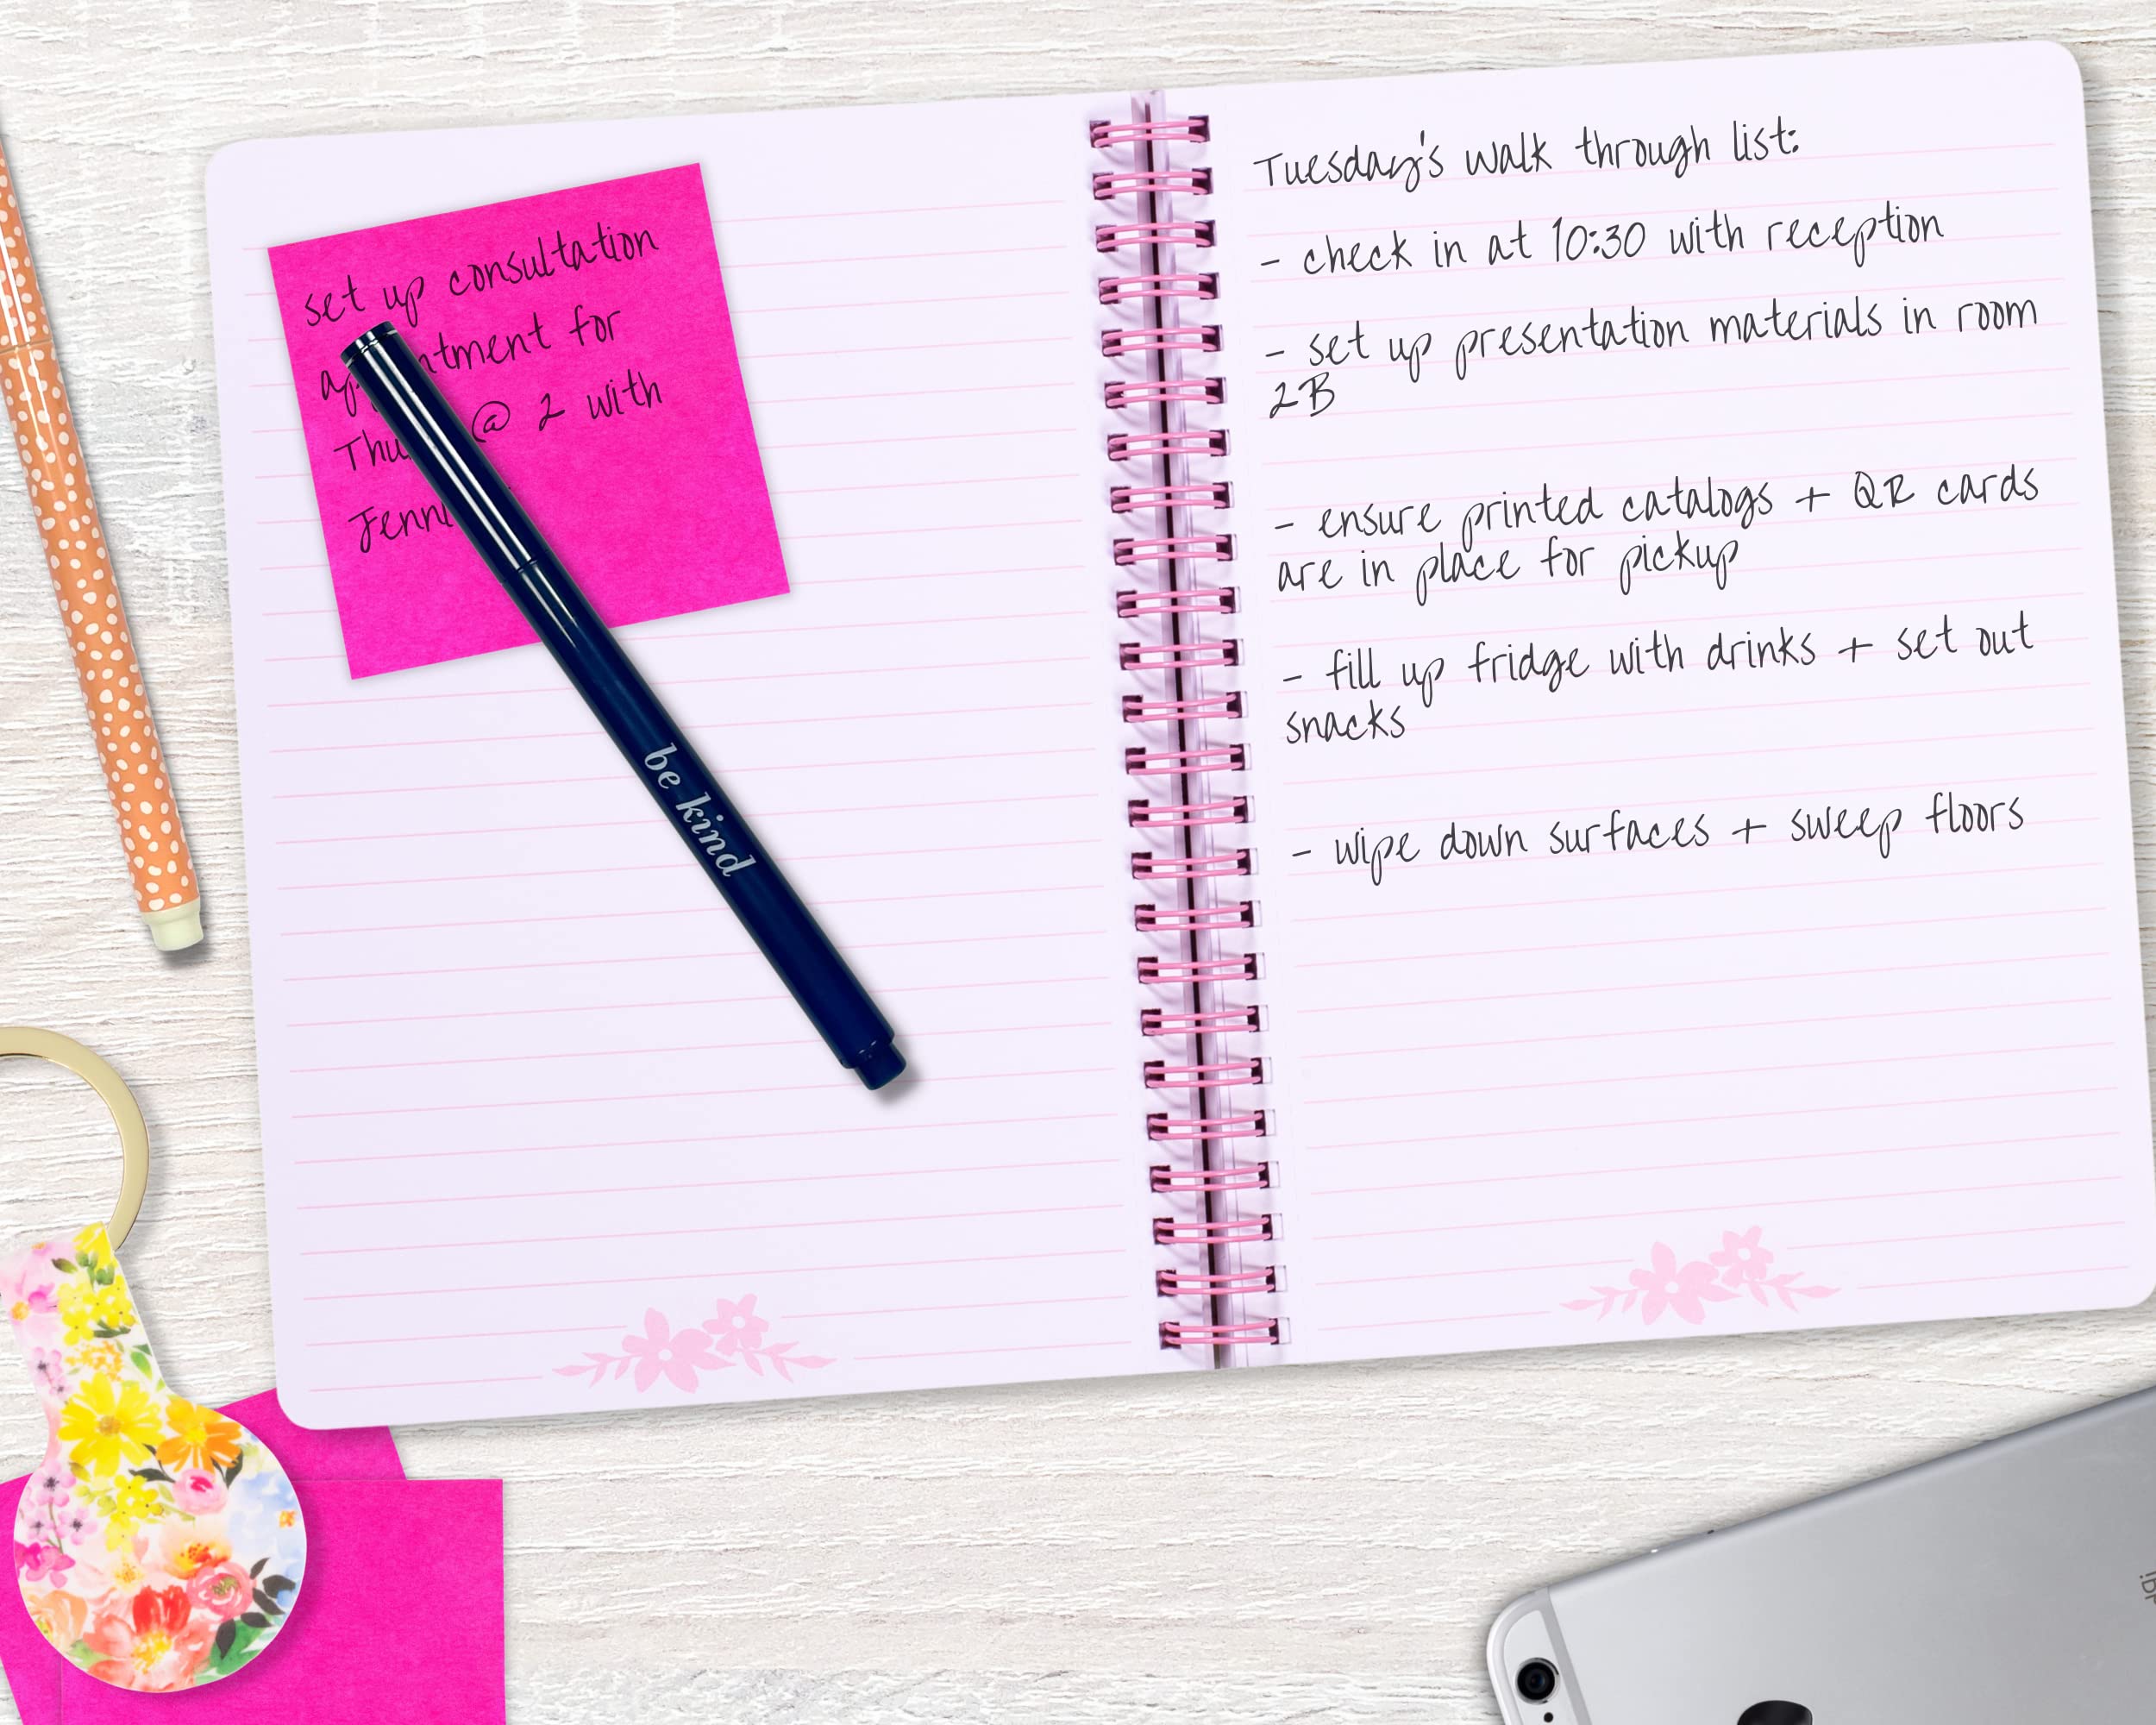 set up consultation
for
@ 2 with
Tuesday's walk through list:
- check in at 10:30 with reception
- set up presentation materials in room
2B
- ensure printed catalogs + QR cards
are in place for pickup
- fill up fridge with drinks + set out
snacks
- wipe down surfaces + sweep floors
be kind